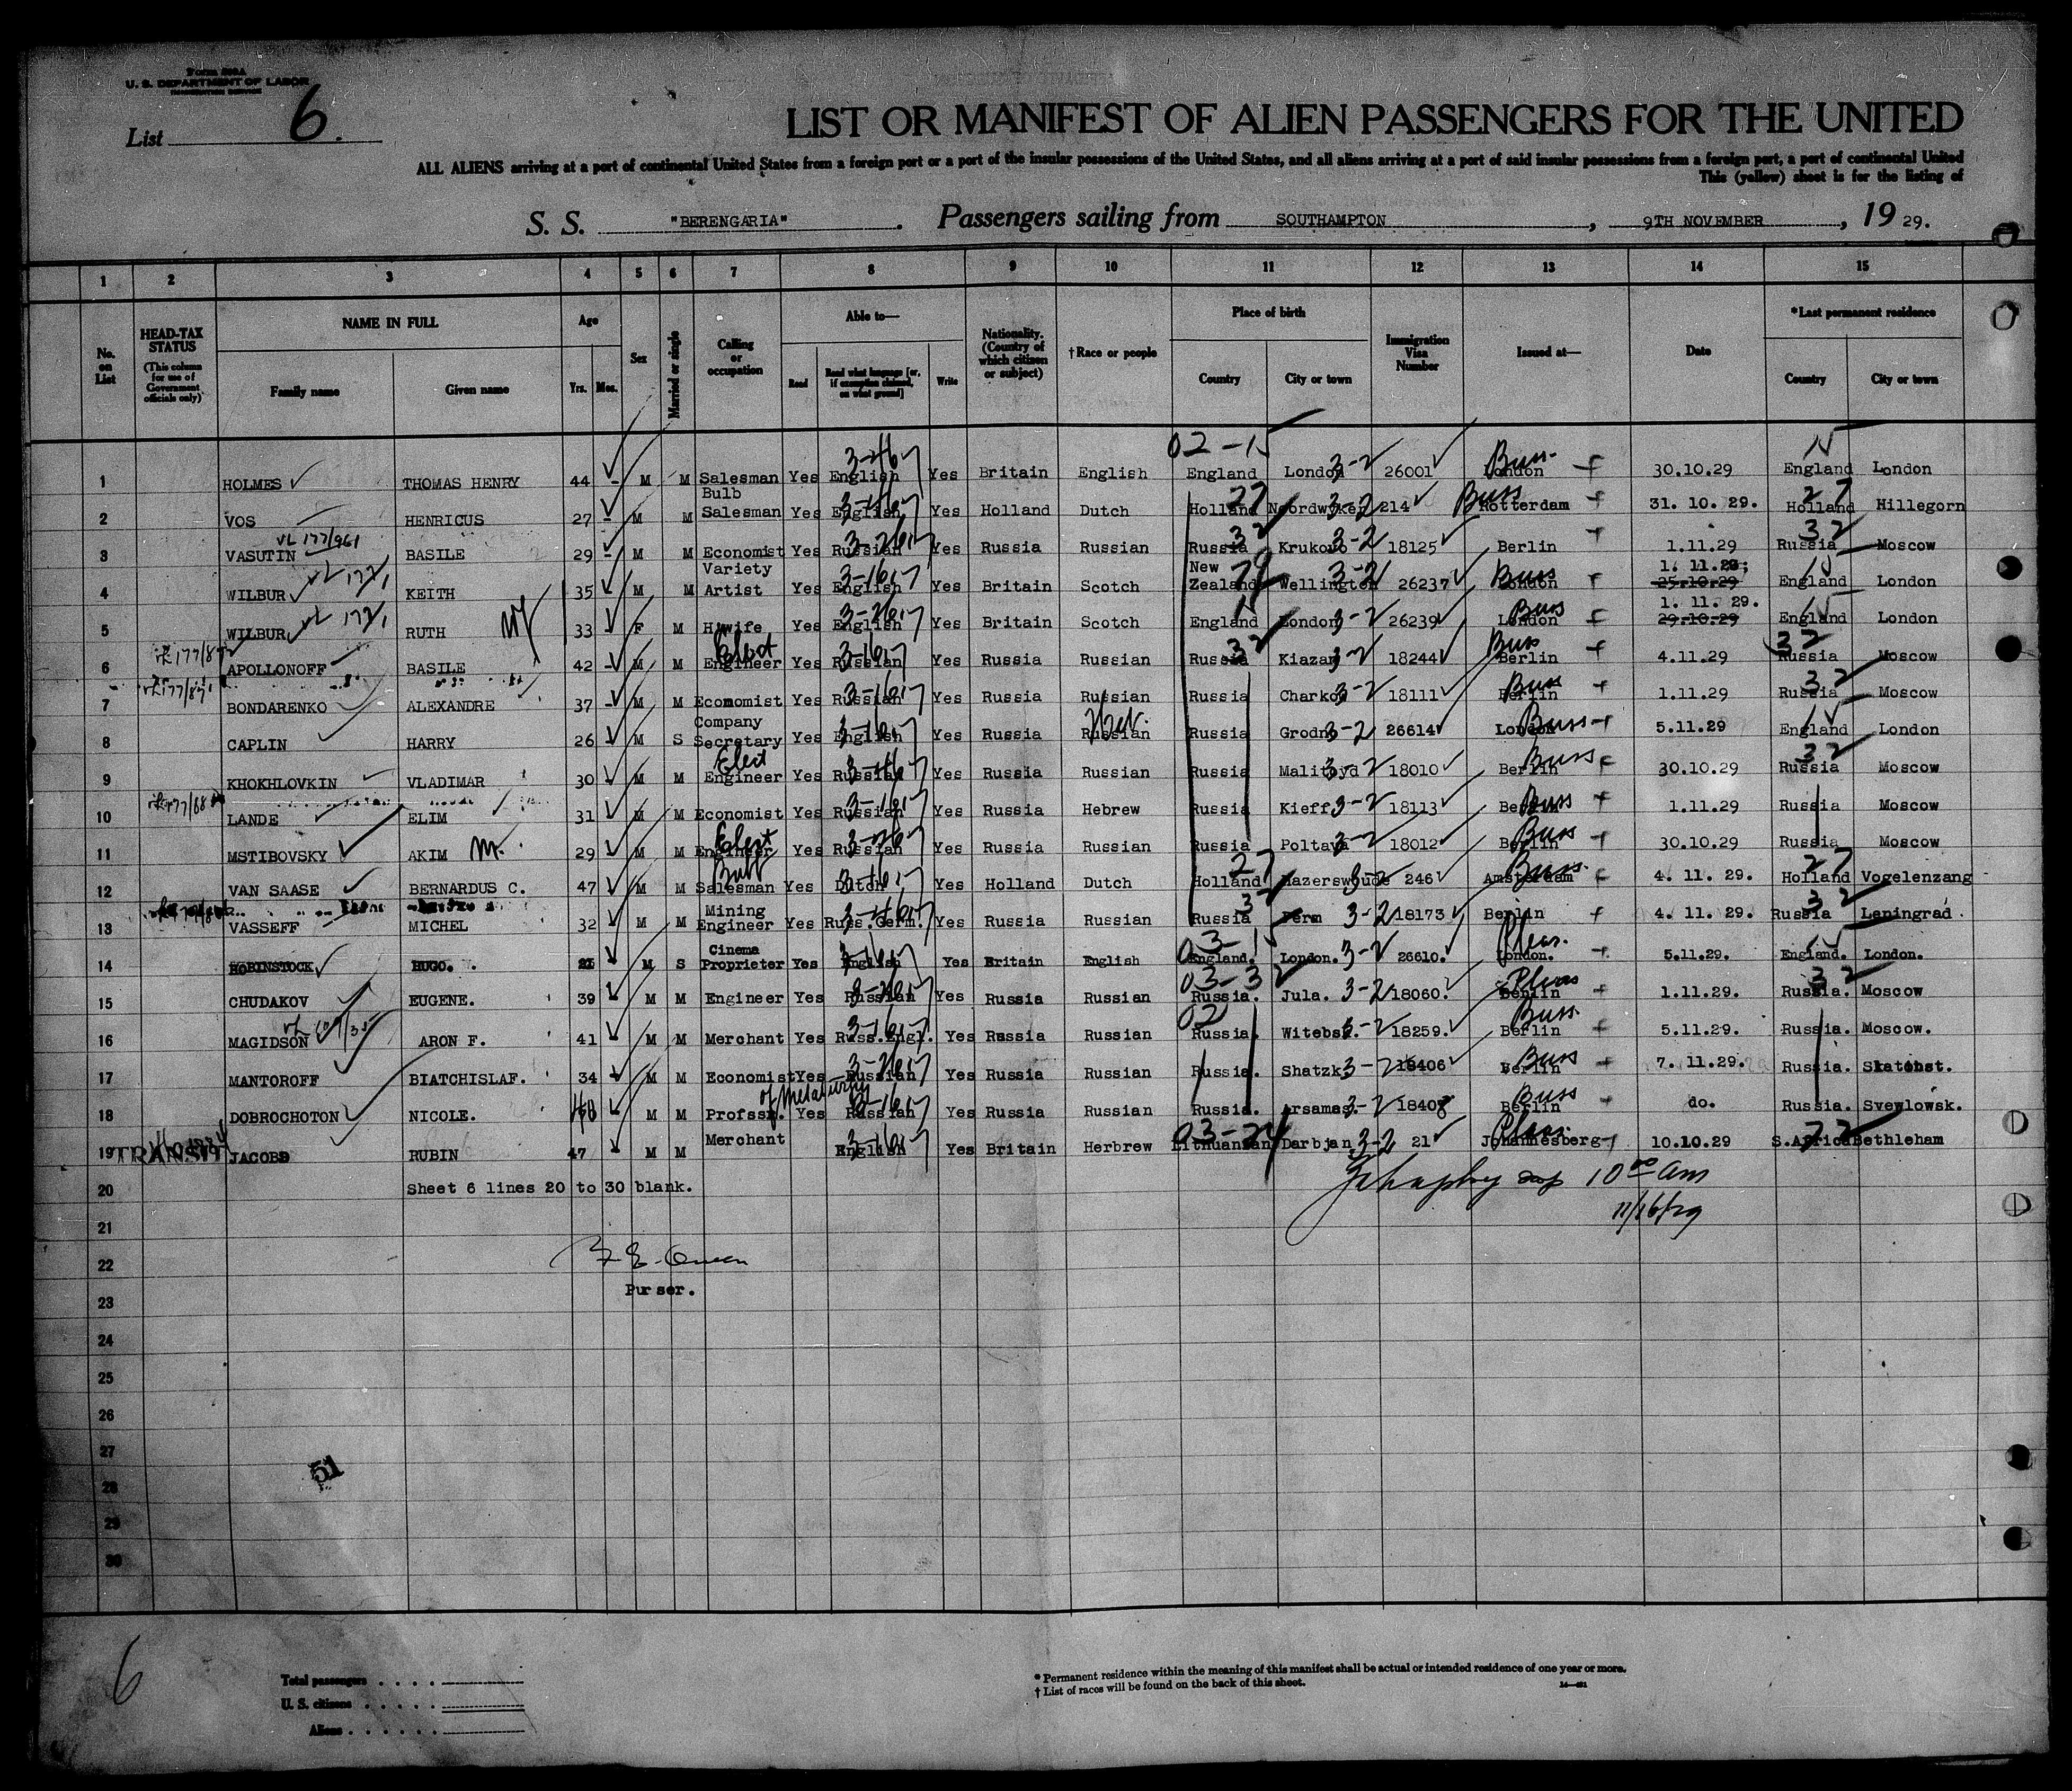 Form 500A
U. S. DEPARTMENT OF LABOR
IMMIGRATION SERVICE
List 6.
LIST OR MANIFEST OF ALIEN PASSENGERS FOR THE UNITED
ALL ALIENS arriving at a port of continental United States from a foreign port or a port of the insular possessions of the United States, and all aliens arriving at a port of said insular possessions from a foreign port, a port of continental United
This (yellow) sheet is for the listing of
S. S. "BERENGARIA". Passengers sailing from SOUTHAMPTON, 9TH NOVEMBER, 19 29.
1 2 3 4 5 6 7 8 9 10 11 12 13 14 15
No. on List HEAD-TAX STATUS (This column for use of Government officials only) NAME IN FULL Family name Given name Age Yrs. Mos. Sex Married or single Calling or occupation Able to— Read Read what language [or, if exemption claimed, on what ground] Write Nationality. (Country of which citizen or subject) †Race or people Place of birth Country City or town Immigration Visa Number Issued at— Date *Last permanent residence Country City or town
02-15 15
1 HOLMES THOMAS HENRY 44 - M M Salesman Yes English Yes Britain English England London 3-2 26001 London Buss. 30.10.29 England London
2 VOS HENRICUS 27 - M M Bulb Salesman Yes English Yes Holland Dutch Holland 27 3-2 214 Rotterdam Buss 31. 10. 29. Holland 27 Hillegorn
3 VASUTIN VL 177/961 BASILE 29 - M M Economist Yes Russian Yes Russia Russian Russia 32 Krukovo 3-2 18125 Berlin 1.11.29 Russia 32 Moscow
4 WILBUR KEITH 35 M M Variety Artist Yes English Yes Britain Scotch New Zealand 79 Wellington 3-2 26237 London Buss 1. 11.29; 25.10.29 England 15 London
5 WILBUR RUTH 33 F M H.wife Yes English Yes Britain Scotch England 15 London 3-2 26239 London Buss 1. 11. 29. 29.10.29 England 15 London
6 APOLLONOFF BASILE 42 - M M Elect Engineer Yes Russian Yes Russia Russian Russia 32 Kiazan 3-2 18244 Berlin Buss 4.11.29 Russia 32 Moscow
7 BONDARENKO ALEXANDRE 37 - M M Economist Yes Russian Yes Russia Russian Russia Charkov 3-2 18111 Berlin Buss 1.11.29 Russia 32 Moscow
8 CAPLIN HARRY 26 M S Company Secretary Yes English Yes Russia Russian Heb. Russia Grodno 3-2 26614 London Buss 5.11.29 England 15 London
9 KHOKHLOVKIN VLADIMAR 30 M M Elect Engineer Yes Russian Yes Russia Russian Russia 3-2 18010 Berlin Buss 30.10.29 Russia 32 Moscow
10 LANDE ELIM 31 M M Economist Yes Russian Yes Russia Hebrew Russia Kieff 3-2 18113 Berlin Buss 1.11.29 Russia Moscow
11 MSTIBOVSKY AKIM 29 M M Elect Engineer Yes Russian Yes Russia Russian Russia Poltava 3-2 18012 Berlin Buss 30.10.29 Russia Moscow
12 VAN SAASE BERNARDUS C. 47 M M Bulb Salesman Yes Dutch Yes Holland Dutch Holland 27 Hazerswoude 3-2 246 Amsterdam Buss. 4. 11. 29. Holland 27 Vogelenzang
13 VASSEFF MICHEL 32 M M Mining Engineer Yes Russ.Germ. Yes Russia Russian Russia 32 Perm 3-2 18173 Berlin 4. 11. 29. Russia 32 Leningrad.
14 HUGO. M S Cinema Proprieter Yes English Yes Britain English 03-15 England. London. 3-2 26610. London. Pleas. 5.11.29. England. 15 London.
15 CHUDAKOV EUGENE. 39 M M Engineer Yes Russian Yes Russia Russian 03-32 Russia. Jula. 3-2 18060. Berlin Pleas 1.11.29. Russia. 32 Moscow
16 MAGIDSON ARON F. 41 M M Merchant Yes Russ.Engl. Yes Russia Russian 02 Russia. Witebsk. 3-2 18259. Berlin Buss. 5.11.29. Russia. Moscow.
17 MANTOROFF BIATCHISLAF. 34 M M Economist Yes Russian Yes Russia Russian Russia. Shatzk. 3-2 18406 Berlin Buss 7. 11.29. Russia.
18 DOBROCHOTON NICOLE. 40 M M Profssr. of Metallurgy Yes Russian Yes Russia Russian Russia. Arsamas. 3-2 18408 Berlin Buss do. Russia. Svewlowsk.
19 TRANSIT JACOBS RUBIN 47 M M Merchant English Yes Britain Herbrew 03-24 Lithuanian Darbjan. 3-2 21 Johannesberg Pleas. 10.10.29 S.Africa 77 Bethleham
20 Sheet 6 lines 20 to 30 blank.
10 00 am
21
11/16/29
22
Purser.
23
24
25
26
27
51
28
29
30
6
Total passengers . . . .
U. S. citizens . . . . .
Aliens . . . . . .
* Permanent residence within the meaning of this manifest shall be actual or intended residence of one year or more.
† List of races will be found on the back of this sheet.